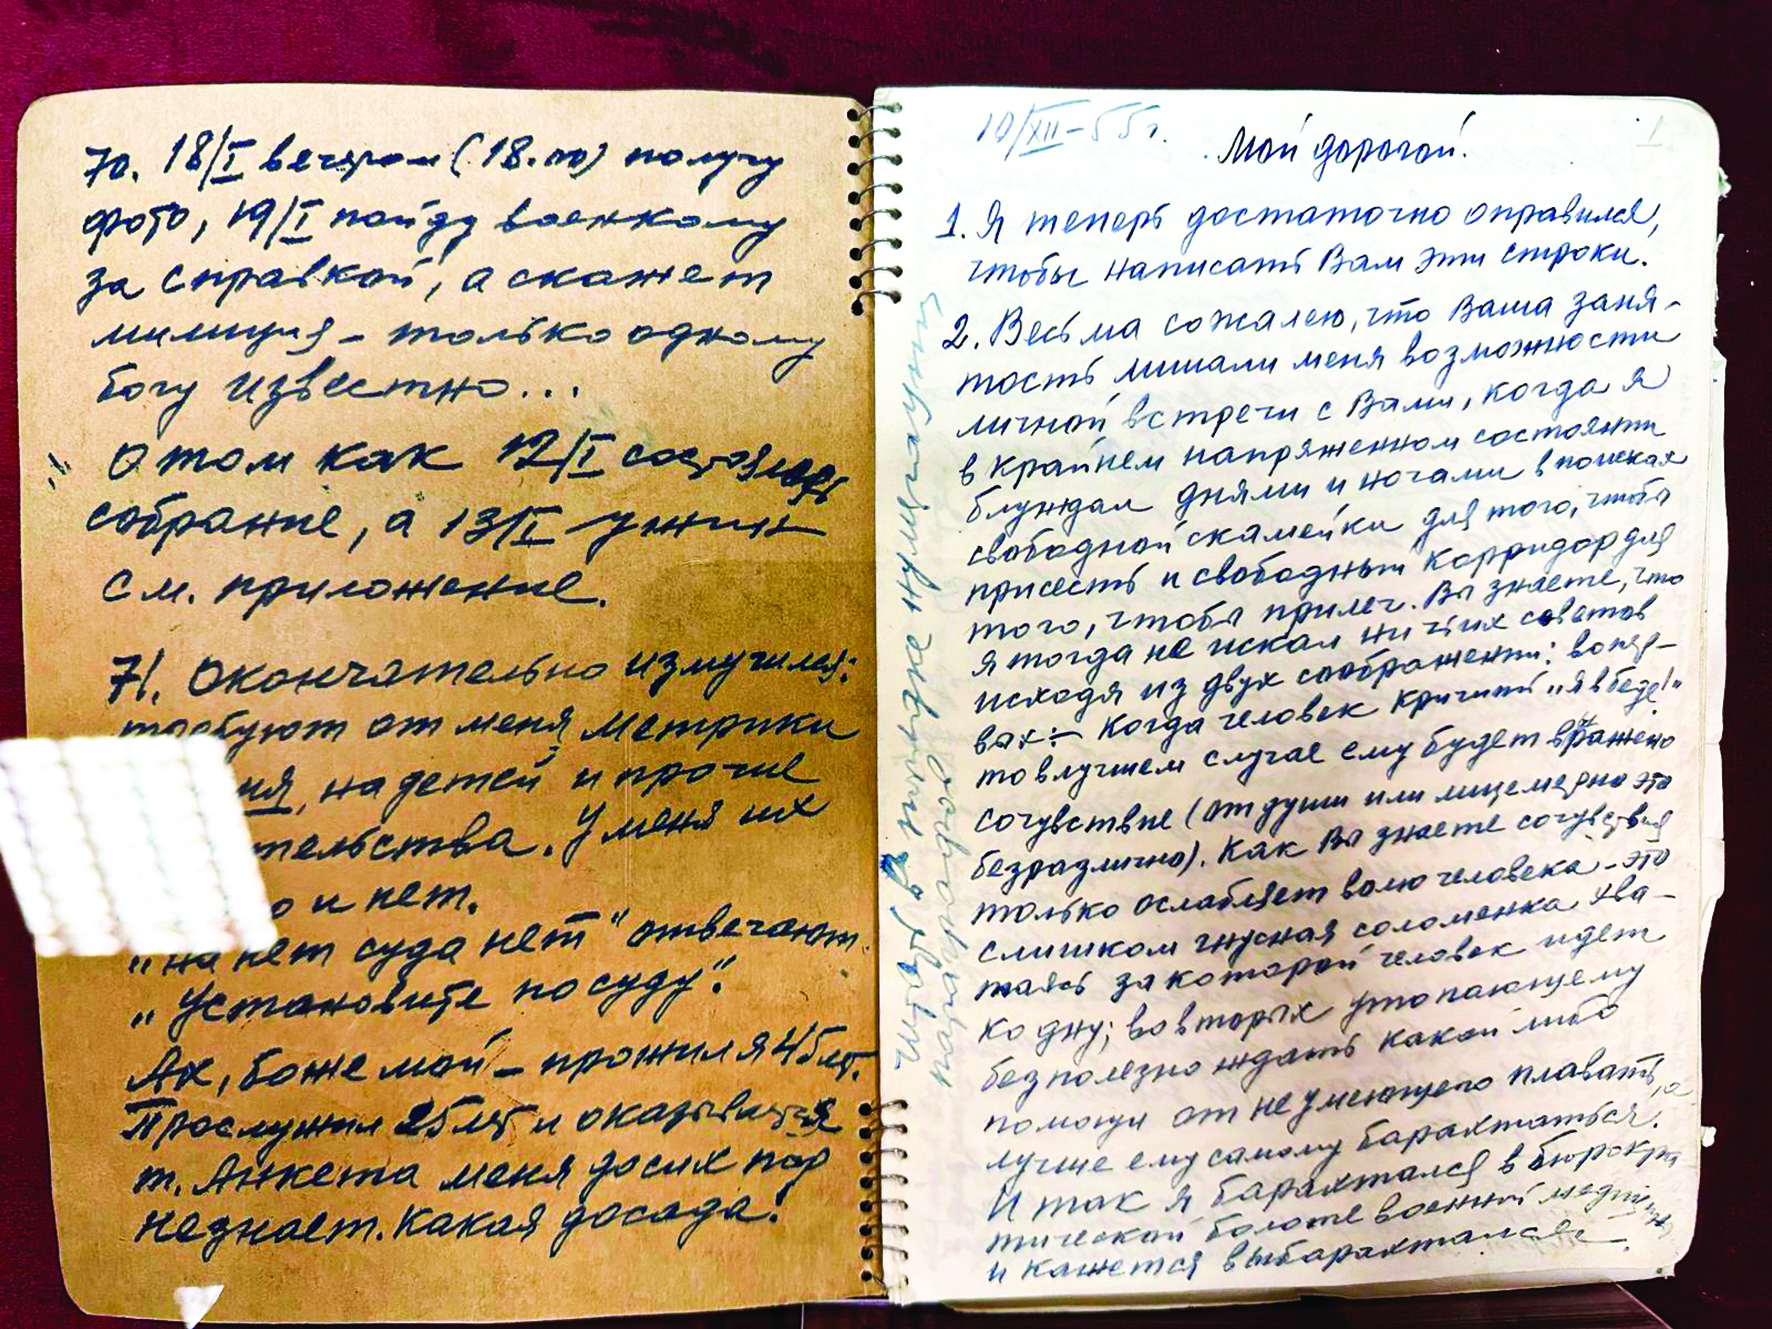 70. 18/I вечером (18.00) получу
фото, 19/I пойду военкому
за справкой, а скажет
милиция – только одному
богу известно...
О том как 12/I состоялось
собрание, а 13/I ужин
см. приложение.
71. Окончательно измучился:
требуют от меня метрики
на детей и прочие
У меня их
и нет.
„на нет суда нет" отвечают.
„Установите по суду".
Ах, боже мой – прожил я 45 лет.
Прослужил 25 лет и оказывается
т. Анкета меня до сих пор
не знает. Какая досада!
10/XII – 55 г.
1
Мой дорогой.
1. Я теперь достаточно оправился,
чтобы написать Вам эти строки.
2. Весьма сожалею, что Ваша заня-
тость лишали меня возможности
личной встречи с Вами, когда я
в крайнем напряженном состоянии
блуждал днями и ночами в поисках
свободной скамейки для того, чтобы
присесть и свободный корридор для
того, чтобы прилеч. Вы знаете, что
я тогда не искал ни чьих советов
исходя из двух соображений: во пер-
вых :– Когда человек кричит „я в беде!"
то в лучшем случае ему будет выражено
сочувствие (от души или лицемерно это
безразлично). Как Вы знаете сочувствия
только ослабляет волю человека – это
слишком гнусная соломенка хва-
таясь за которой человек идет
ко дну; во вторых утопающему
безполезно ждать какой либо
помощи от не умеющего плавать, а
лучше ему самому барахтаться.
И так я барахтался в бюрокра
тической болоте военной
и кажется выбарахтался.